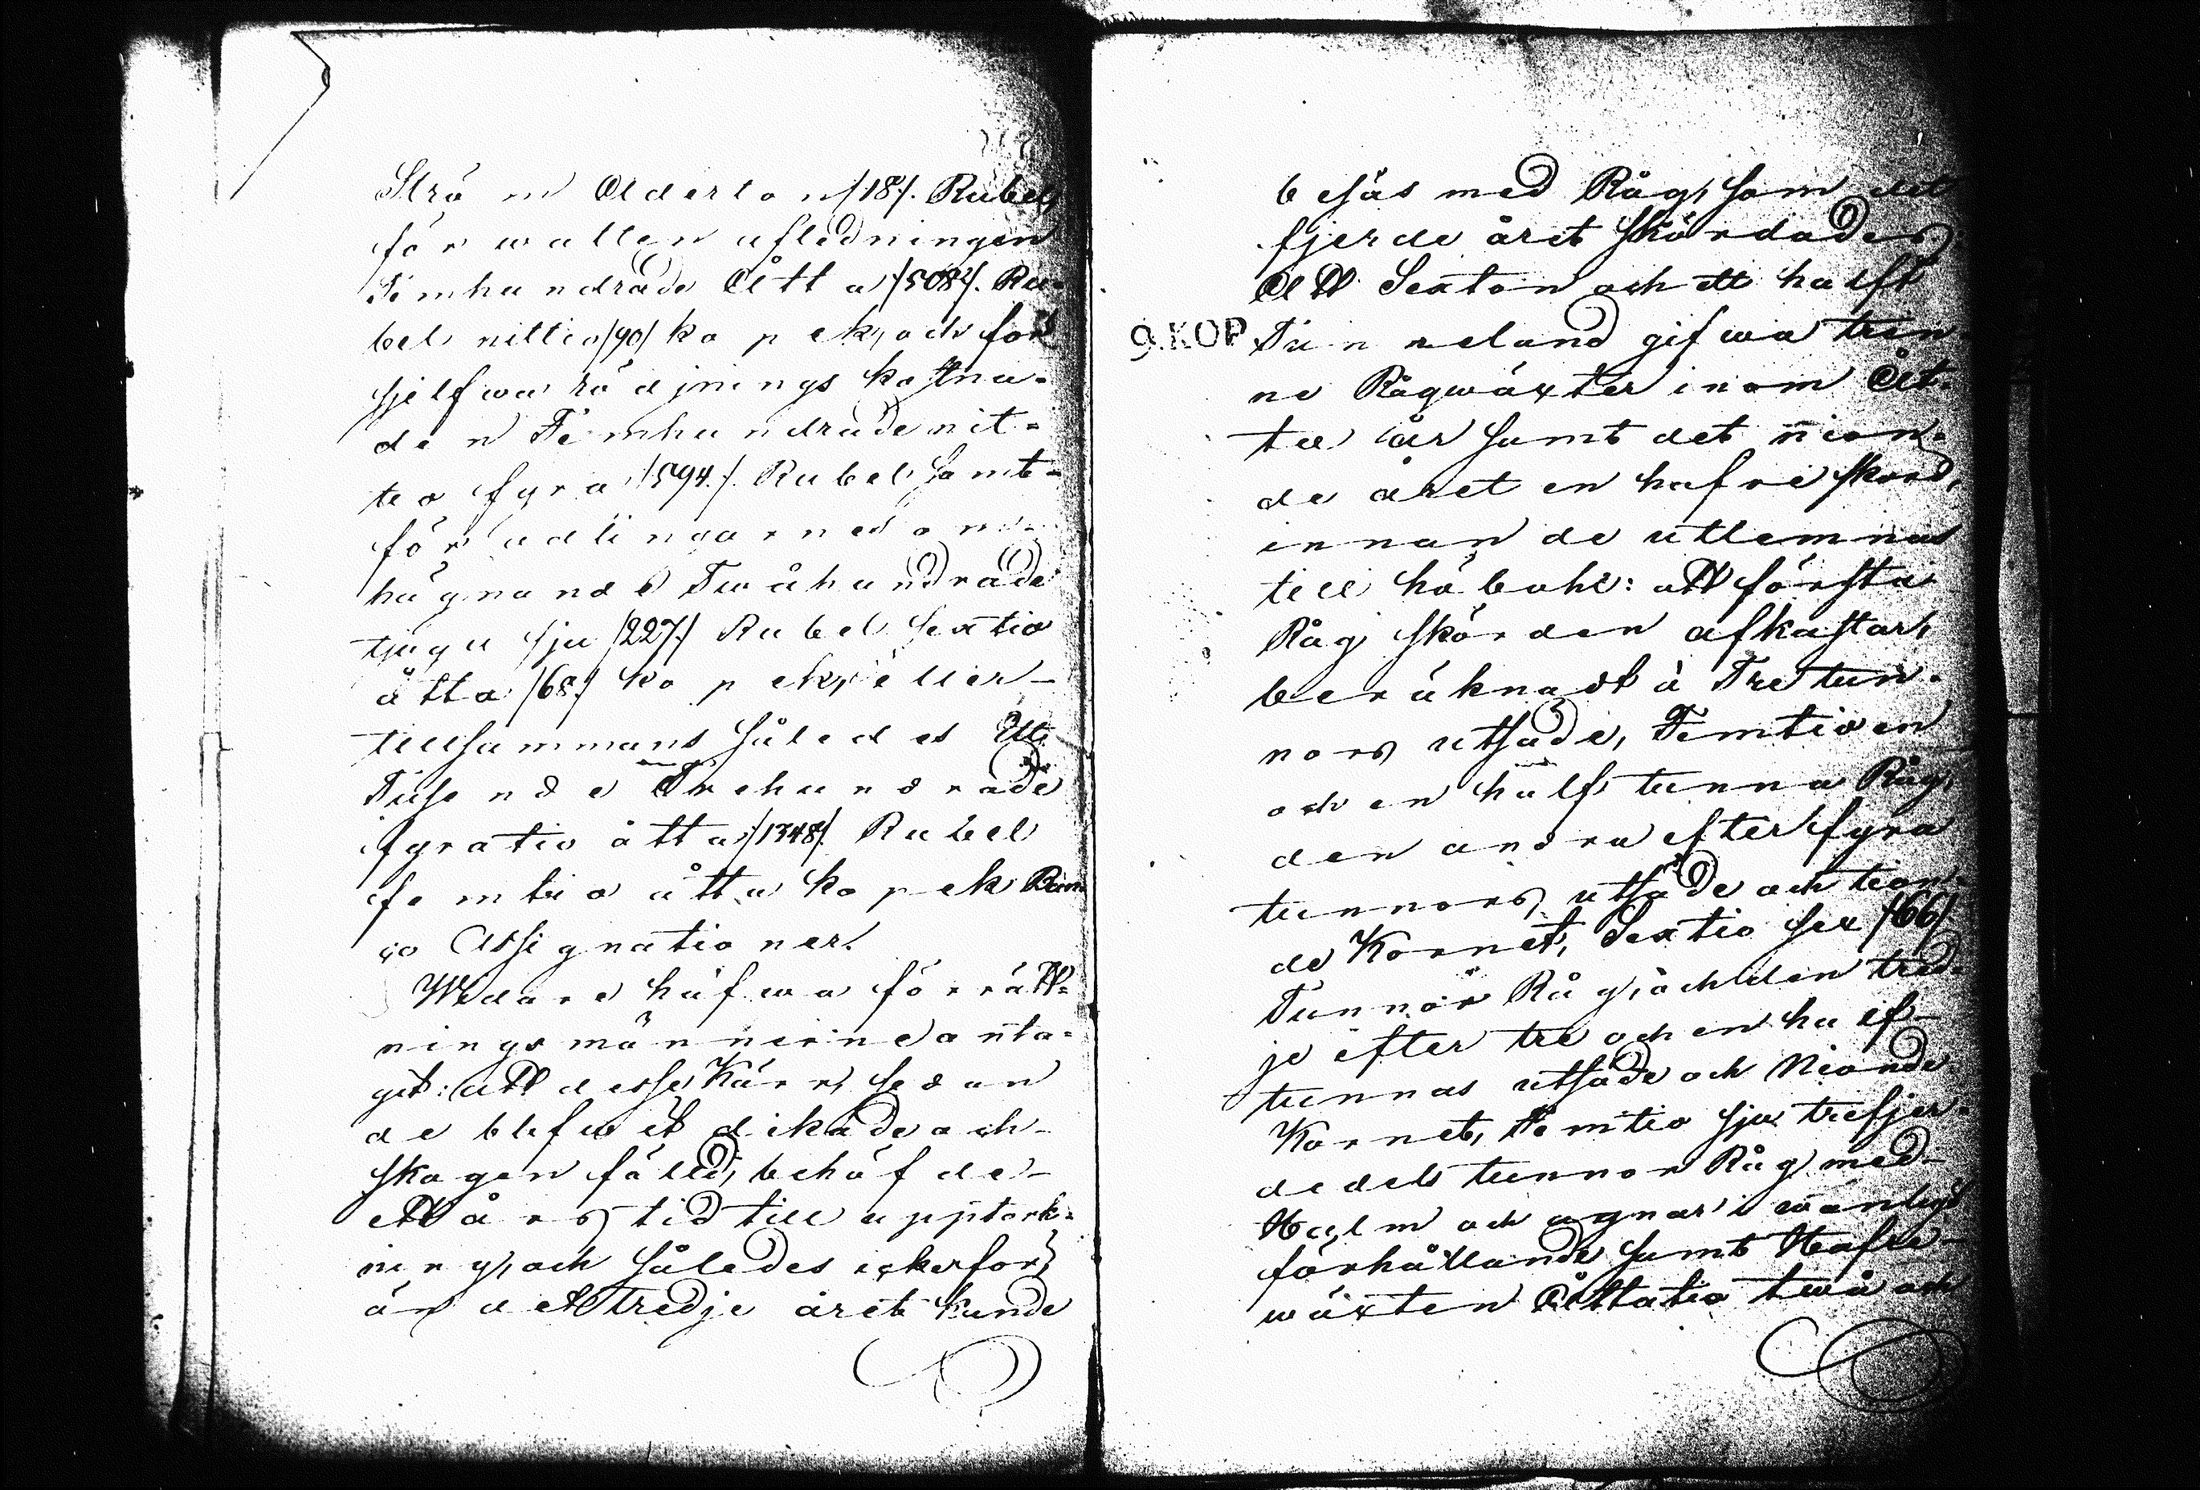 Ström Aderton /18/. Rubel,
för wattenafledningen
Femhundrade Åtta /508/. Ru-
bel nittio /90/ kopek, och för
sjelfwa rödjnings kostna-
den Femhundrade nit-
tio fyra /594./. Rubel samt
för odlingarnes om-
hägnande Twåhundrade
tjugu sju /227./ Rubel sextio
åtta /68./ kopek, eller
tillsammans således Ett
Tusende Trehundrade
fyratio åtta /1348/. Rubel
femtio åtta kopek Ban-
co Assignationer.
Widare hafwa förrätt-
ningsmännerne anta-
git: att desse Kärr, sedan
de blefwit dikade och
skogen fälld, behöfde
ett års tid till upptork-
ning, och således icke förr
än det tredje året kunde
besås med Råg, som det
fjerde året skördades
Att Sexton och ett halft
9. KOP.
Tunneland gifwa tren-
ne Rågwäxter inom Åt-
ta år samt det nion-
de året en hafre skörd,
innan de utlemnas
till höbohl: att första
Råg skörden afkastar,
beräknadt à Tre tun-
nors utsäde, Femtio en
och en half tunna Råg,
den andra efter fyra
tunnors utsäde och tion-
de Kornet, Sextio sex /66/
Tunnor Råg, och den tred-
je efter tre och en half
tunnas utsäde och Nionde
Kornet, Femtio sju trefjer-
dedels tunnor Råg med
Halm och agnar i wanligt
förhållande samt Hafre-
wäxten Åttatio twå och